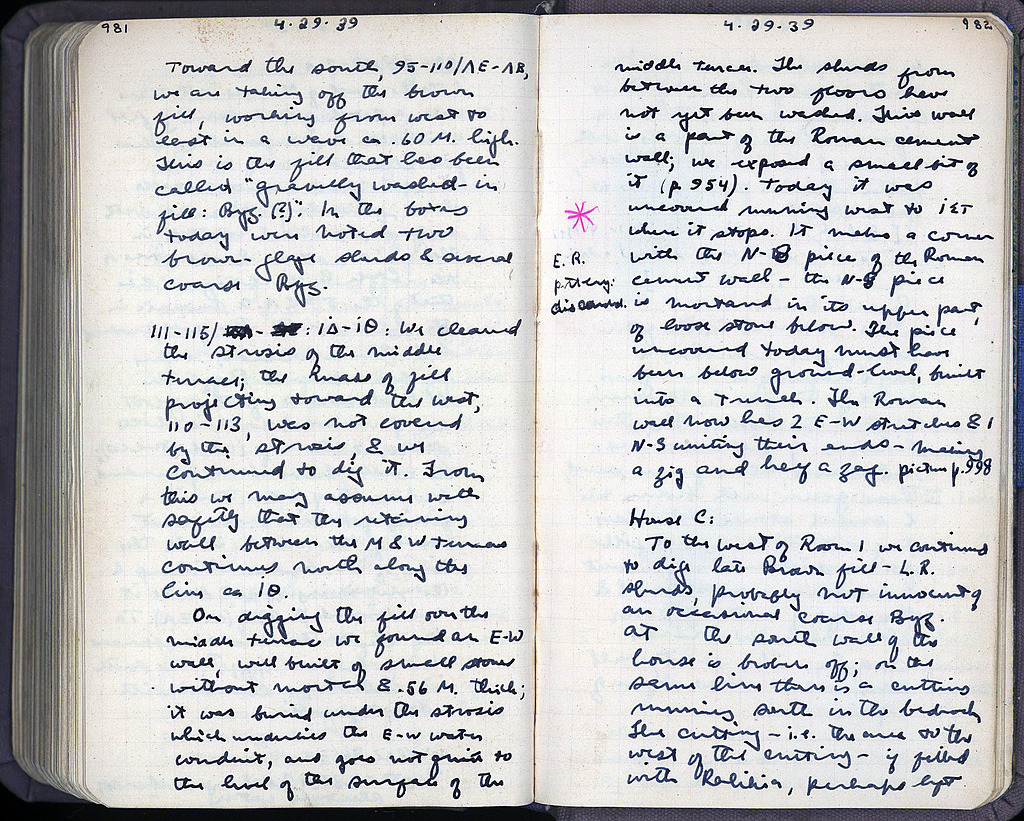 981
4.29.39
Toward the south, 95-110/ΛΕ-ΛΒ,
we are taking off the brown
fill, working from west to
east in a wave ca .60 M. high.
This is the fill that has been
called "gravelly washed-in
fill: Byz. (?)". In the boxes
today were noted two
brown-glaze sherds & several
coarse Byz.
111-115/ ΙΔ-ΙΘ: We cleared
the strosis of the middle
terrace; the mass of fill
projecting toward the west,
110-113, was not covered
by the strosis, & we
continued to dig it. From
this we may assume with
safety that the retaining
wall between the M & W terraces
continues north along the
line ca ΙΘ.
On digging the fill over the
middle terrace we found an E-W
wall, well built of small stones
without mortar & .56 M. thick;
it was buried under the strosis
which underlies the E-W water
conduit, and goes not quite to
the level of the surface of the
4.29.39
982
middle terrace. The sherds from
between the two floors have
not yet been washed. This wall
is a part of the Roman cement
wall; we exposed a small bit of
it (p. 954). Today it was
uncovered running west to
where it stops. It makes a corner
with the N-S piece of the Roman
cement wall - the N-S piece
is mortared in its upper part,
of loose stone below. The piece
uncovered today must have
been below ground-level, built
into a trench. The Roman
wall now has 2 E-W stretches & 1
N-S uniting their ends - making
a zig and half a zag. picture p. 998
E.R.
pottery
discarded.
House C:
To the west of Room 1 we continued
to dig late Brown fill - L.R.
sherds, probably not innocent of
an occasional coarse Byz.
at the south wall of the
house is broken off; on the
same line there is a cutting
running south in the bedrock
The cutting - i.e. the area to the
west of the cutting - is filled
with, perhaps left